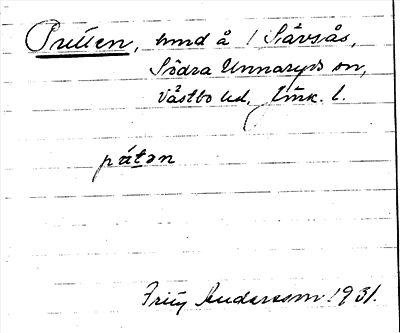 Prillen, hmd å / Sävsås,
Södra Unnaryds sn,
Västbo hd, Jönk. l.
pátən
Fritz Andersson 1931.